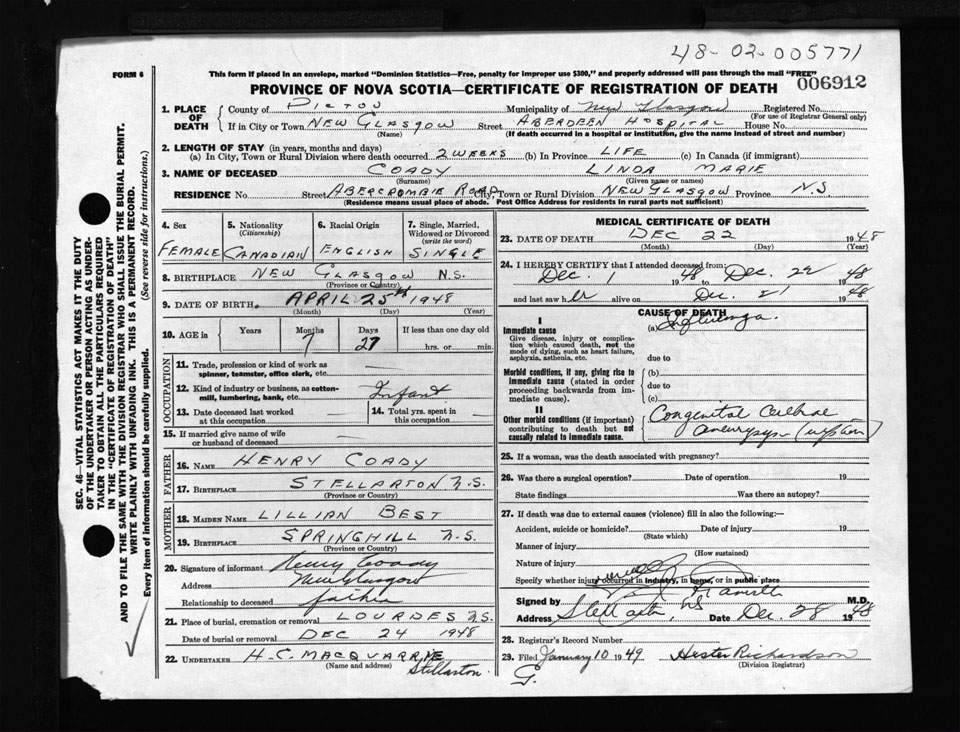 48-02-005771
FORM 6
This form if placed in an envelope, marked "Dominion Statistics—Free, penalty for improper use $300," and properly addressed will pass through the mail "FREE"
006912
PROVINCE OF NOVA SCOTIA—CERTIFICATE OF REGISTRATION OF DEATH
SEC. 46—VITAL STATISTICS ACT MAKES IT THE DUTY
OF THE UNDERTAKER OR PERSON ACTING AS UNDER-
TAKER TO OBTAIN ALL THE PARTICULARS REQUIRED
IN THE "CERTIFICATE OF REGISTRATION OF DEATH"
AND TO FILE THE SAME WITH THE DIVISION REGISTRAR WHO SHALL ISSUE THE BURIAL PERMIT.
WRITE PLAINLY WITH UNFADING INK. THIS IS A PERMANENT RECORD.
Every item of information should be carefully supplied. (See reverse side for instructions.)
1. PLACE OF DEATH County of PICTOU Municipality of New Glasgow Registered No.
(For use of Registrar General only)
If in City or Town NEW GLASGOW Street ABERDEEN HOSPITAL House No.
(Name) (If death occurred in a hospital or institution, give the name instead of street and number)
2. LENGTH OF STAY (in years, months and days)
(a) In City, Town or Rural Division where death occurred 2 WEEKS (b) In Province LIFE (c) In Canada (if immigrant)
3. NAME OF DECEASED COADY LINDA MARIE
(Surname) (Given name or names)
RESIDENCE No. Street ABERCROMBIE ROAD City, Town or Rural Division NEW GLASGOW Province N.S
(Residence means usual place of abode. Post Office Address for residents in rural parts not sufficient)
4. Sex 5. Nationality (Citizenship) 6. Racial Origin 7. Single, Married, Widowed or Divorced (write the word)
FEMALE CANADIAN ENGLISH SINGLE
8. BIRTHPLACE NEW GLASGOW N.S.
(Province or Country)
9. DATE OF BIRTH APRIL 25th 1948
(Month) (Day) (Year)
10. AGE in Years Months Days If less than one day old
7 27 hrs. or min.
OCCUPATION
11. Trade, profession or kind of work as spinner, teamster, office clerk, etc. —
12. Kind of industry or business, as cotton-mill, lumbering, bank, etc. Infant
13. Date deceased last worked at this occupation — 14. Total yrs. spent in this occupation —
15. If married give name of wife or husband of deceased —
FATHER
16. NAME HENRY COADY
17. BIRTHPLACE STELLARTON N.S.
(Province or Country)
MOTHER
18. MAIDEN NAME LILLIAN BEST
19. BIRTHPLACE SPRINGHILL N.S.
(Province or Country)
20. Signature of informant Henry Coady
Address New Glasgow
Relationship to deceased father
21. Place of burial, cremation or removal LOURDES N.S.
Date of burial or removal DEC 24 1948
22. UNDERTAKER H.C. MACQUARRIE
(Name and address) Stellarton
MEDICAL CERTIFICATE OF DEATH
23. DATE OF DEATH DEC 22 1948
(Month) (Day) (Year)
24. I HEREBY CERTIFY that I attended deceased from:
Dec. 1 1948 to Dec. 22 1948
and last saw her alive on Dec. 21 1948
CAUSE OF DEATH
I
Immediate cause (a) Influenza.
Give disease, injury or complication which caused death, not the mode of dying, such as heart failure, asphyxia, asthenia, etc.
due to
Morbid conditions, if any, giving rise to immediate cause (stated in order proceeding backwards from immediate cause).
(b)
due to
(c)
II
Other morbid conditions (if important) contributing to death but not causally related to immediate cause.
Congenital Cerebral
aneurysm
25. If a woman, was the death associated with pregnancy?
26. Was there a surgical operation? Date of operation 19
State findings Was there an autopsy?
27. If death was due to external causes (violence) fill in also the following:—
Accident, suicide or homicide? Date of injury 19
(State which)
Manner of injury
(How sustained)
Nature of injury
Specify whether injury occurred in industry, in home, or in public place
Signed by M.D.
Address Stellarton NS Date Dec. 28 1948
28. Registrar's Record Number
29. Filed January 10 1949 Hester Richardson
(Division Registrar)
G.